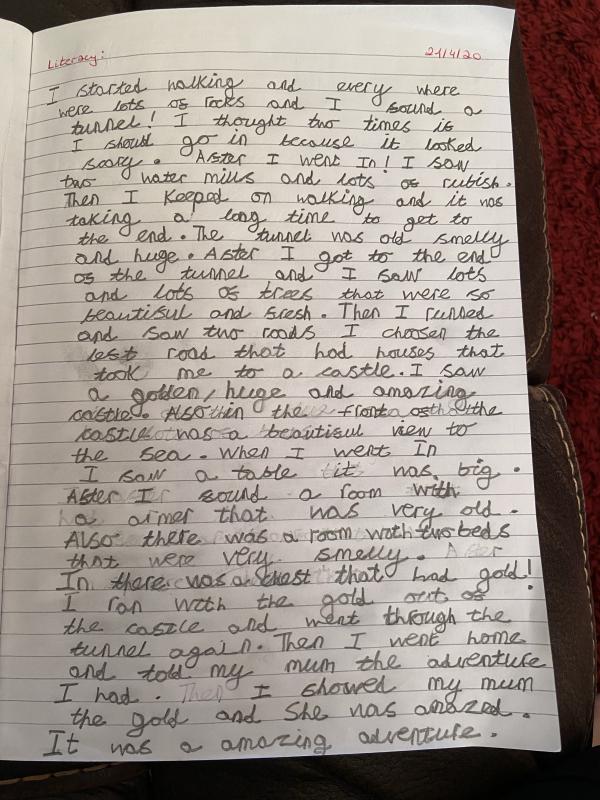 Literacy: 21/4/20
I started walking and every where
were lots of rocks and I found a
tunnel! I thought two times if
I should go in because it looked
scary. After I went In! I saw
two water mills and lots of rubish.
Then I Keeped on walking and it was
taking a long time to get to
the end. The tunnel was old smelly
and huge. After I got to the end
of the tunnel and I saw lots
and lots of trees that were so
beautiful and fresh. Then I runned
and saw two roads I choosen the
left road that had houses that
took me to a castle. I saw
a golden, huge and amazing
castle. Also in the front of the
castle was a beautiful view to
the sea. When I went In
I saw a table it was big.
After I found a room with
a armer that was very old.
Also there was a room with two beds
that were very smelly.
In there was a chest that had gold!
I ran with the gold out of
the castle and went through the
tunnel again. Then I went home
and told my mum the adventure
I had. Then I showed my mum
the gold and She was amazed.
It was a amazing adventure.